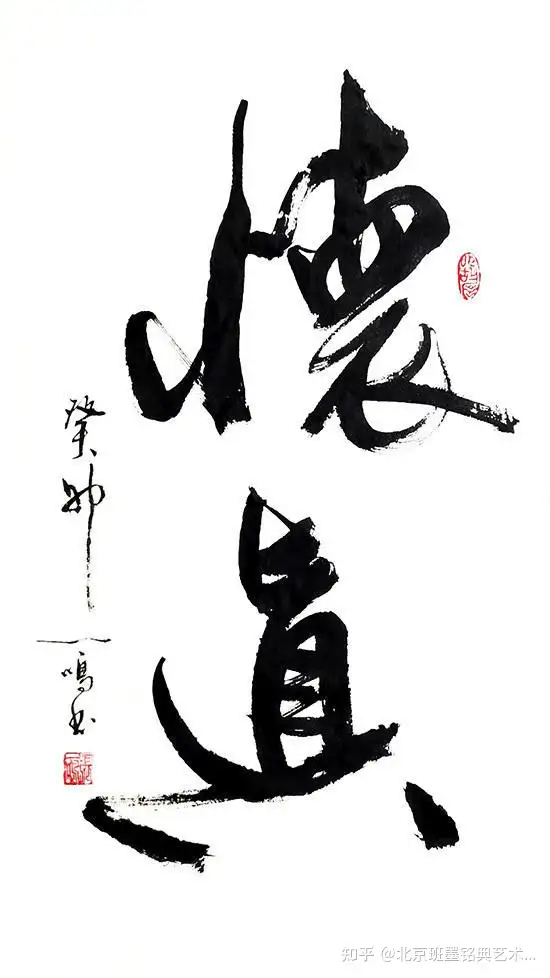 懷眞
癸卯一鳴书
知乎 @北京班墨铭典艺术...